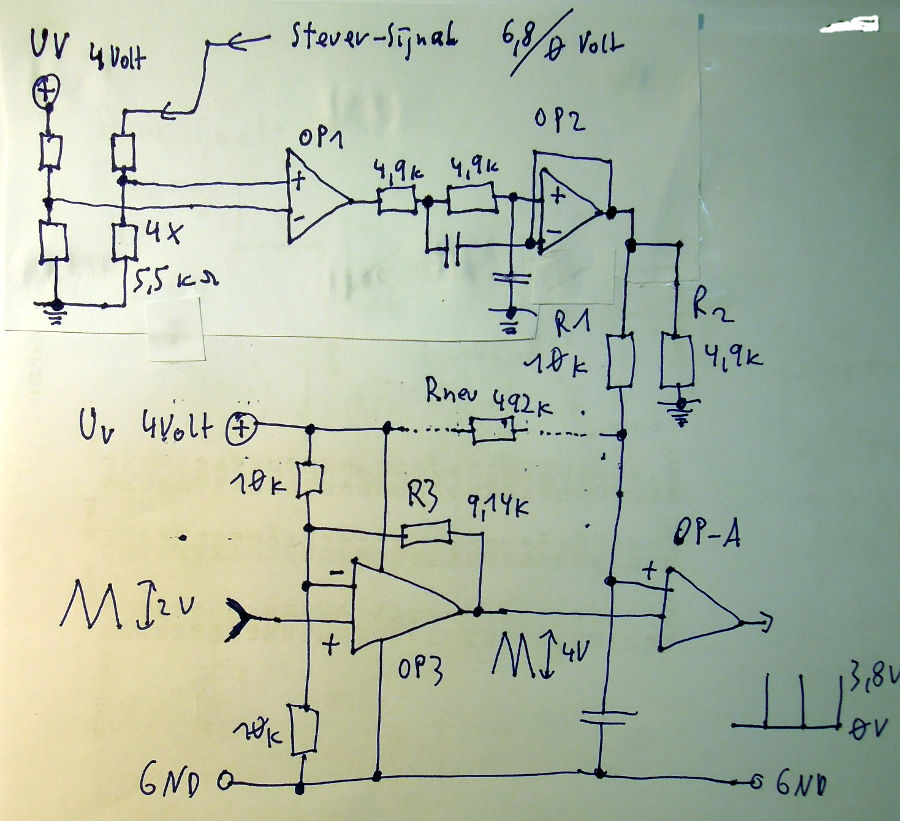 UV 4Volt
Steuer-Signal 6,8/0 Volt
OP1
OP2
+
4,9k
4,9k
+
-
+
-
4X
5,5 KΩ
R1
10k
R2
4,9k
Rneu 492k
Uv 4Volt +
10k
R3
9,14k
OP-A
-
+
+
2V
OP3
4V
3,8V
0V
10k
GND
GND